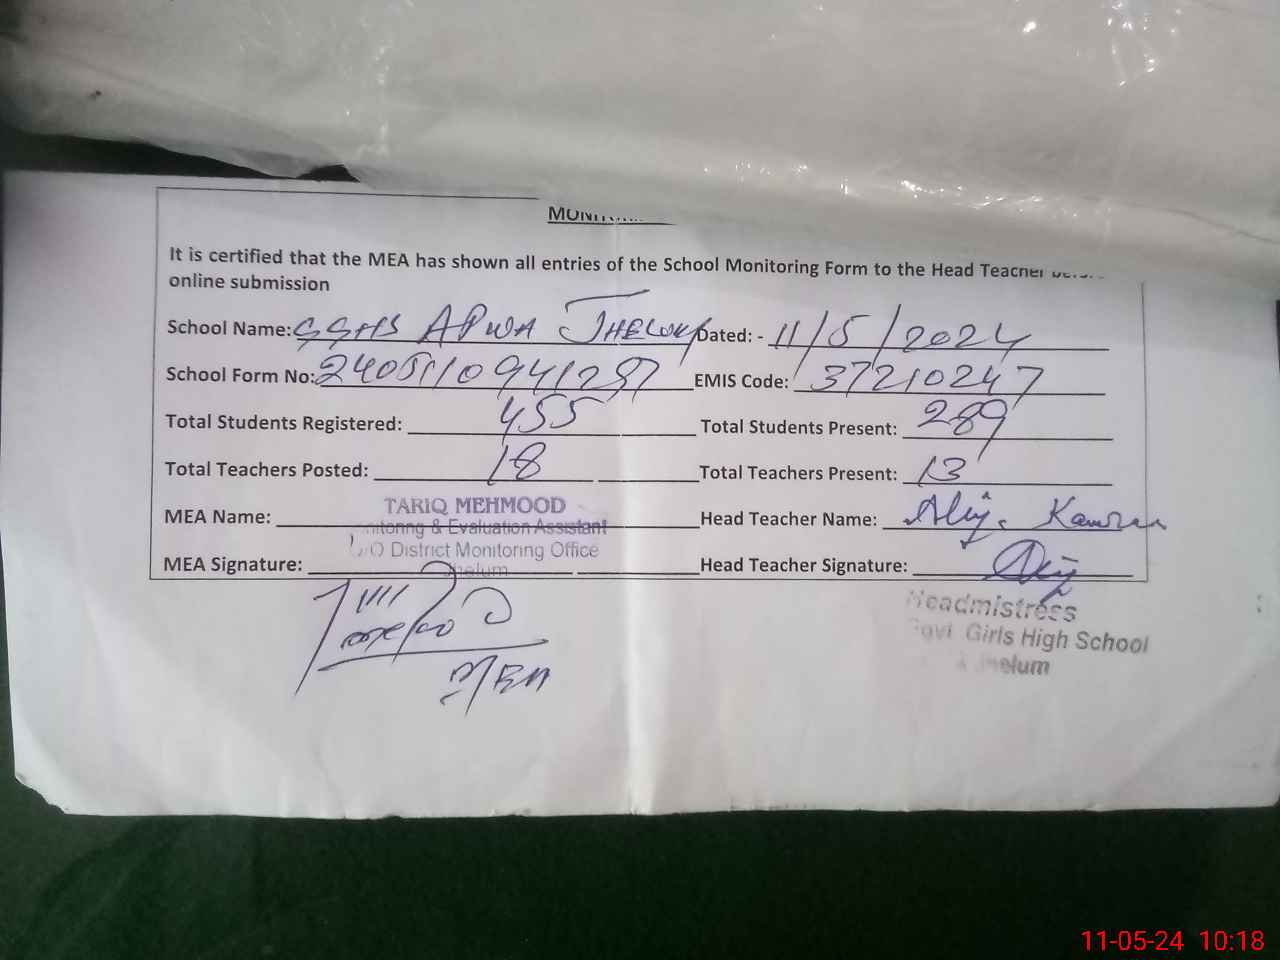 It is certified that the MEA has shown all entries of the School Monitoring Form to the Head Teacher
online submission
School Name: GGHS APWA JHELUM Dated: - 11/5/2024
School Form No: 2405110941257 EMIS Code: 37210247
Total Students Registered: 455 Total Students Present: 289
Total Teachers Posted: 18 Total Teachers Present: 13
MEA Name: TARIQ MEHMOOD Head Teacher Name: Kamran
Monitoring & Evaluation Assistant
O/O District Monitoring Office
MEA Signature: Jhelum Head Teacher Signature:
MEA
Headmistress
Govt Girls High School
Jhelum
11-05-24 10:18